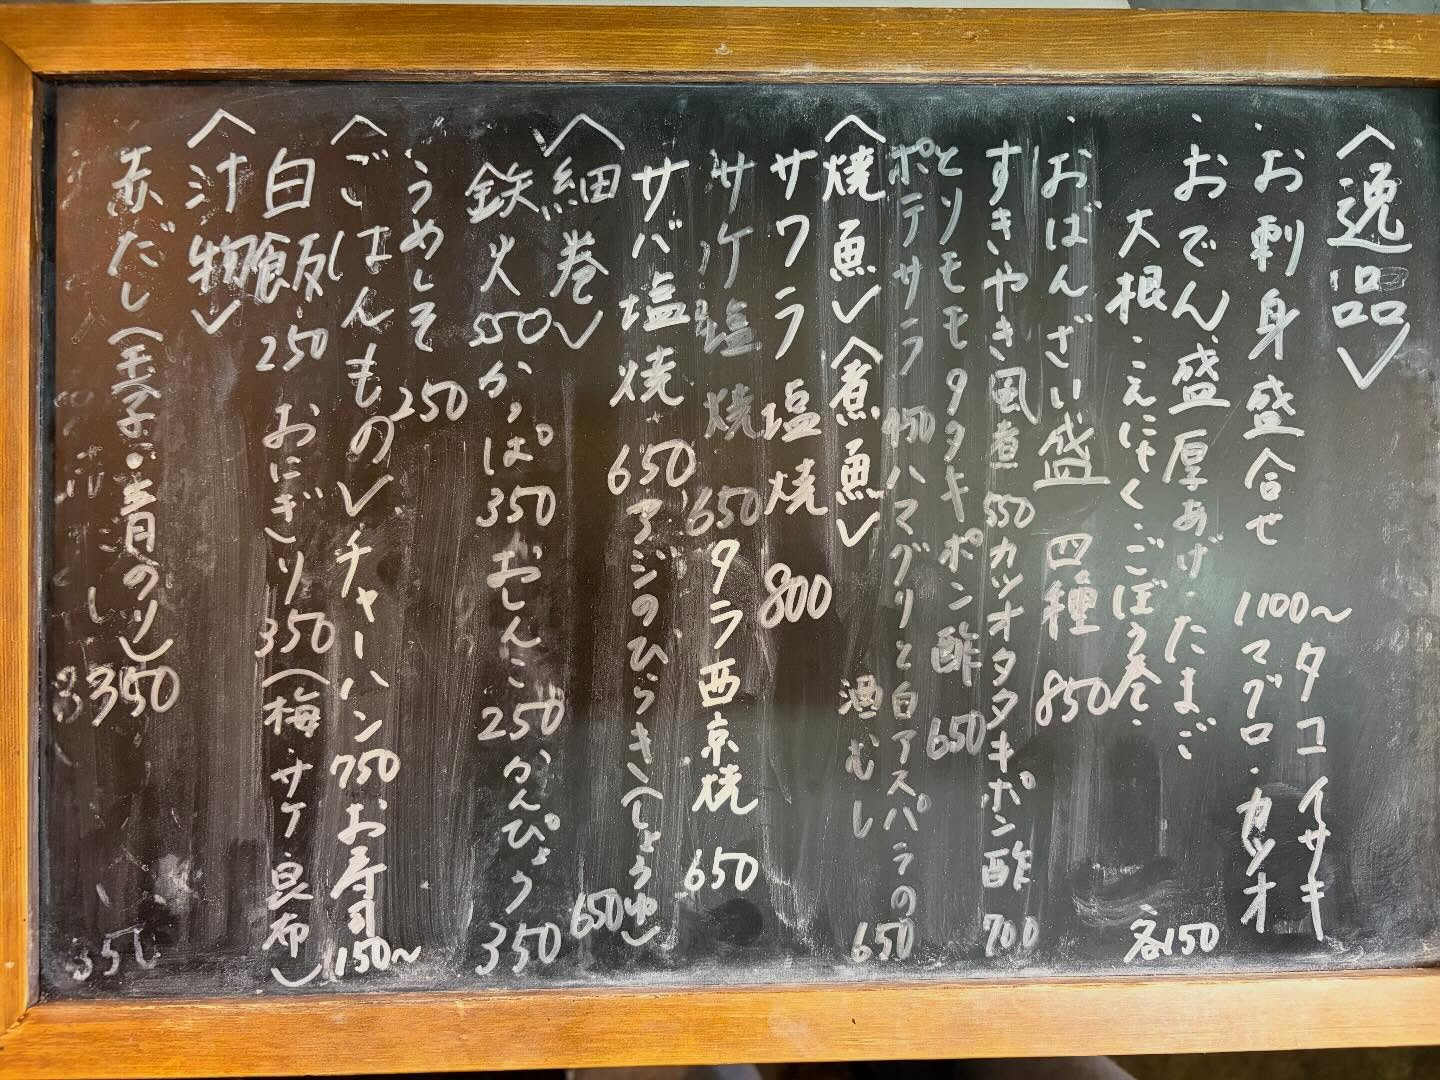 〈逸品〉
・お刺身盛合せ 1100〜 タコ イサキ
マグロ・カツオ
・おでん盛 厚あげ・たまご
大根・こんにゃく・ごぼう巻・ 各150
・おばんざい盛 四種 850
すきやき風煮 550 カツオタタキポン酢 700
とりモモタタキポン酢 650
ポテサラ 450 ハマグリと白アスパラの
酒むし 650
〈焼魚〉〈煮魚〉
サワラ塩焼 800
サケ塩焼 650 タラ西京焼 650
サバ塩焼 650 アジのひらき(しょうゆ) 650
〈細巻〉
鉄火 550 かっぱ 350 おしんこ 250 かんぴょう 350
うめしそ 250
〈ごはんもの〉チャーハン 750 お寿司 150〜
白飯 250 おにぎり 350 (梅・サケ・昆布)
〈汁物〉
赤だし(玉子・青のり) 350